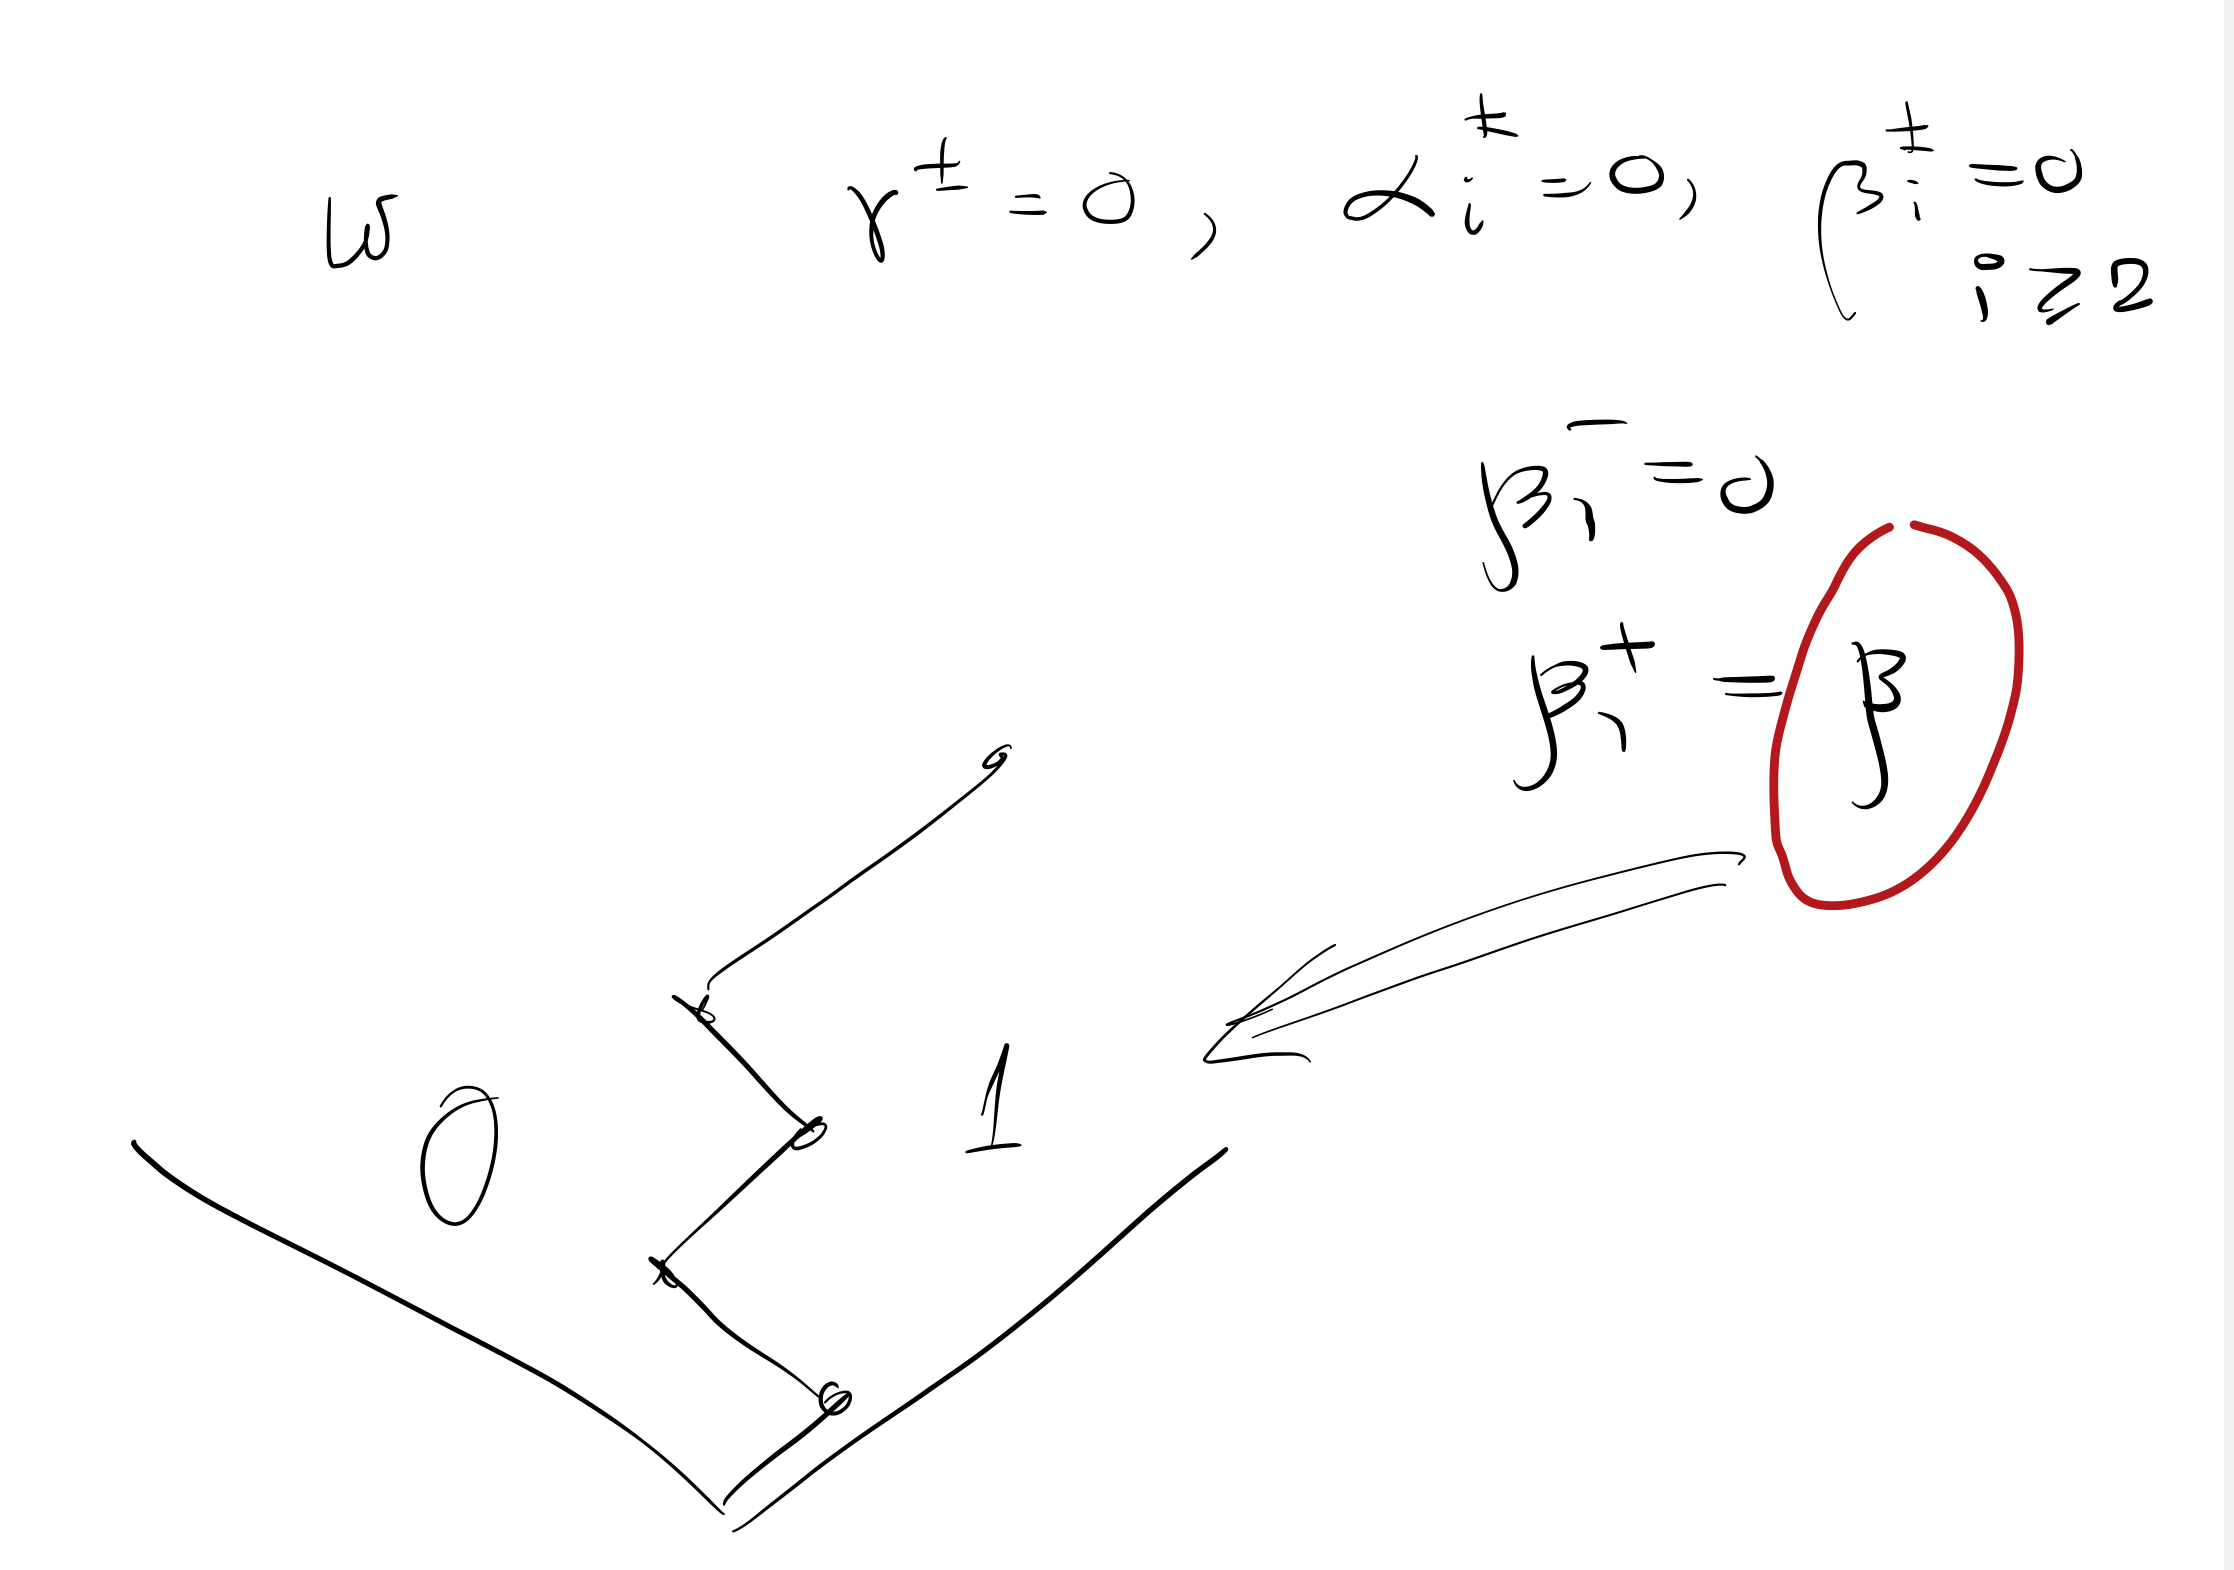 ω γ^± = 0, α_i^± = 0, β_i^± = 0
i ≥ 2
β_1^- = 0
β_1^+ = β
0 1